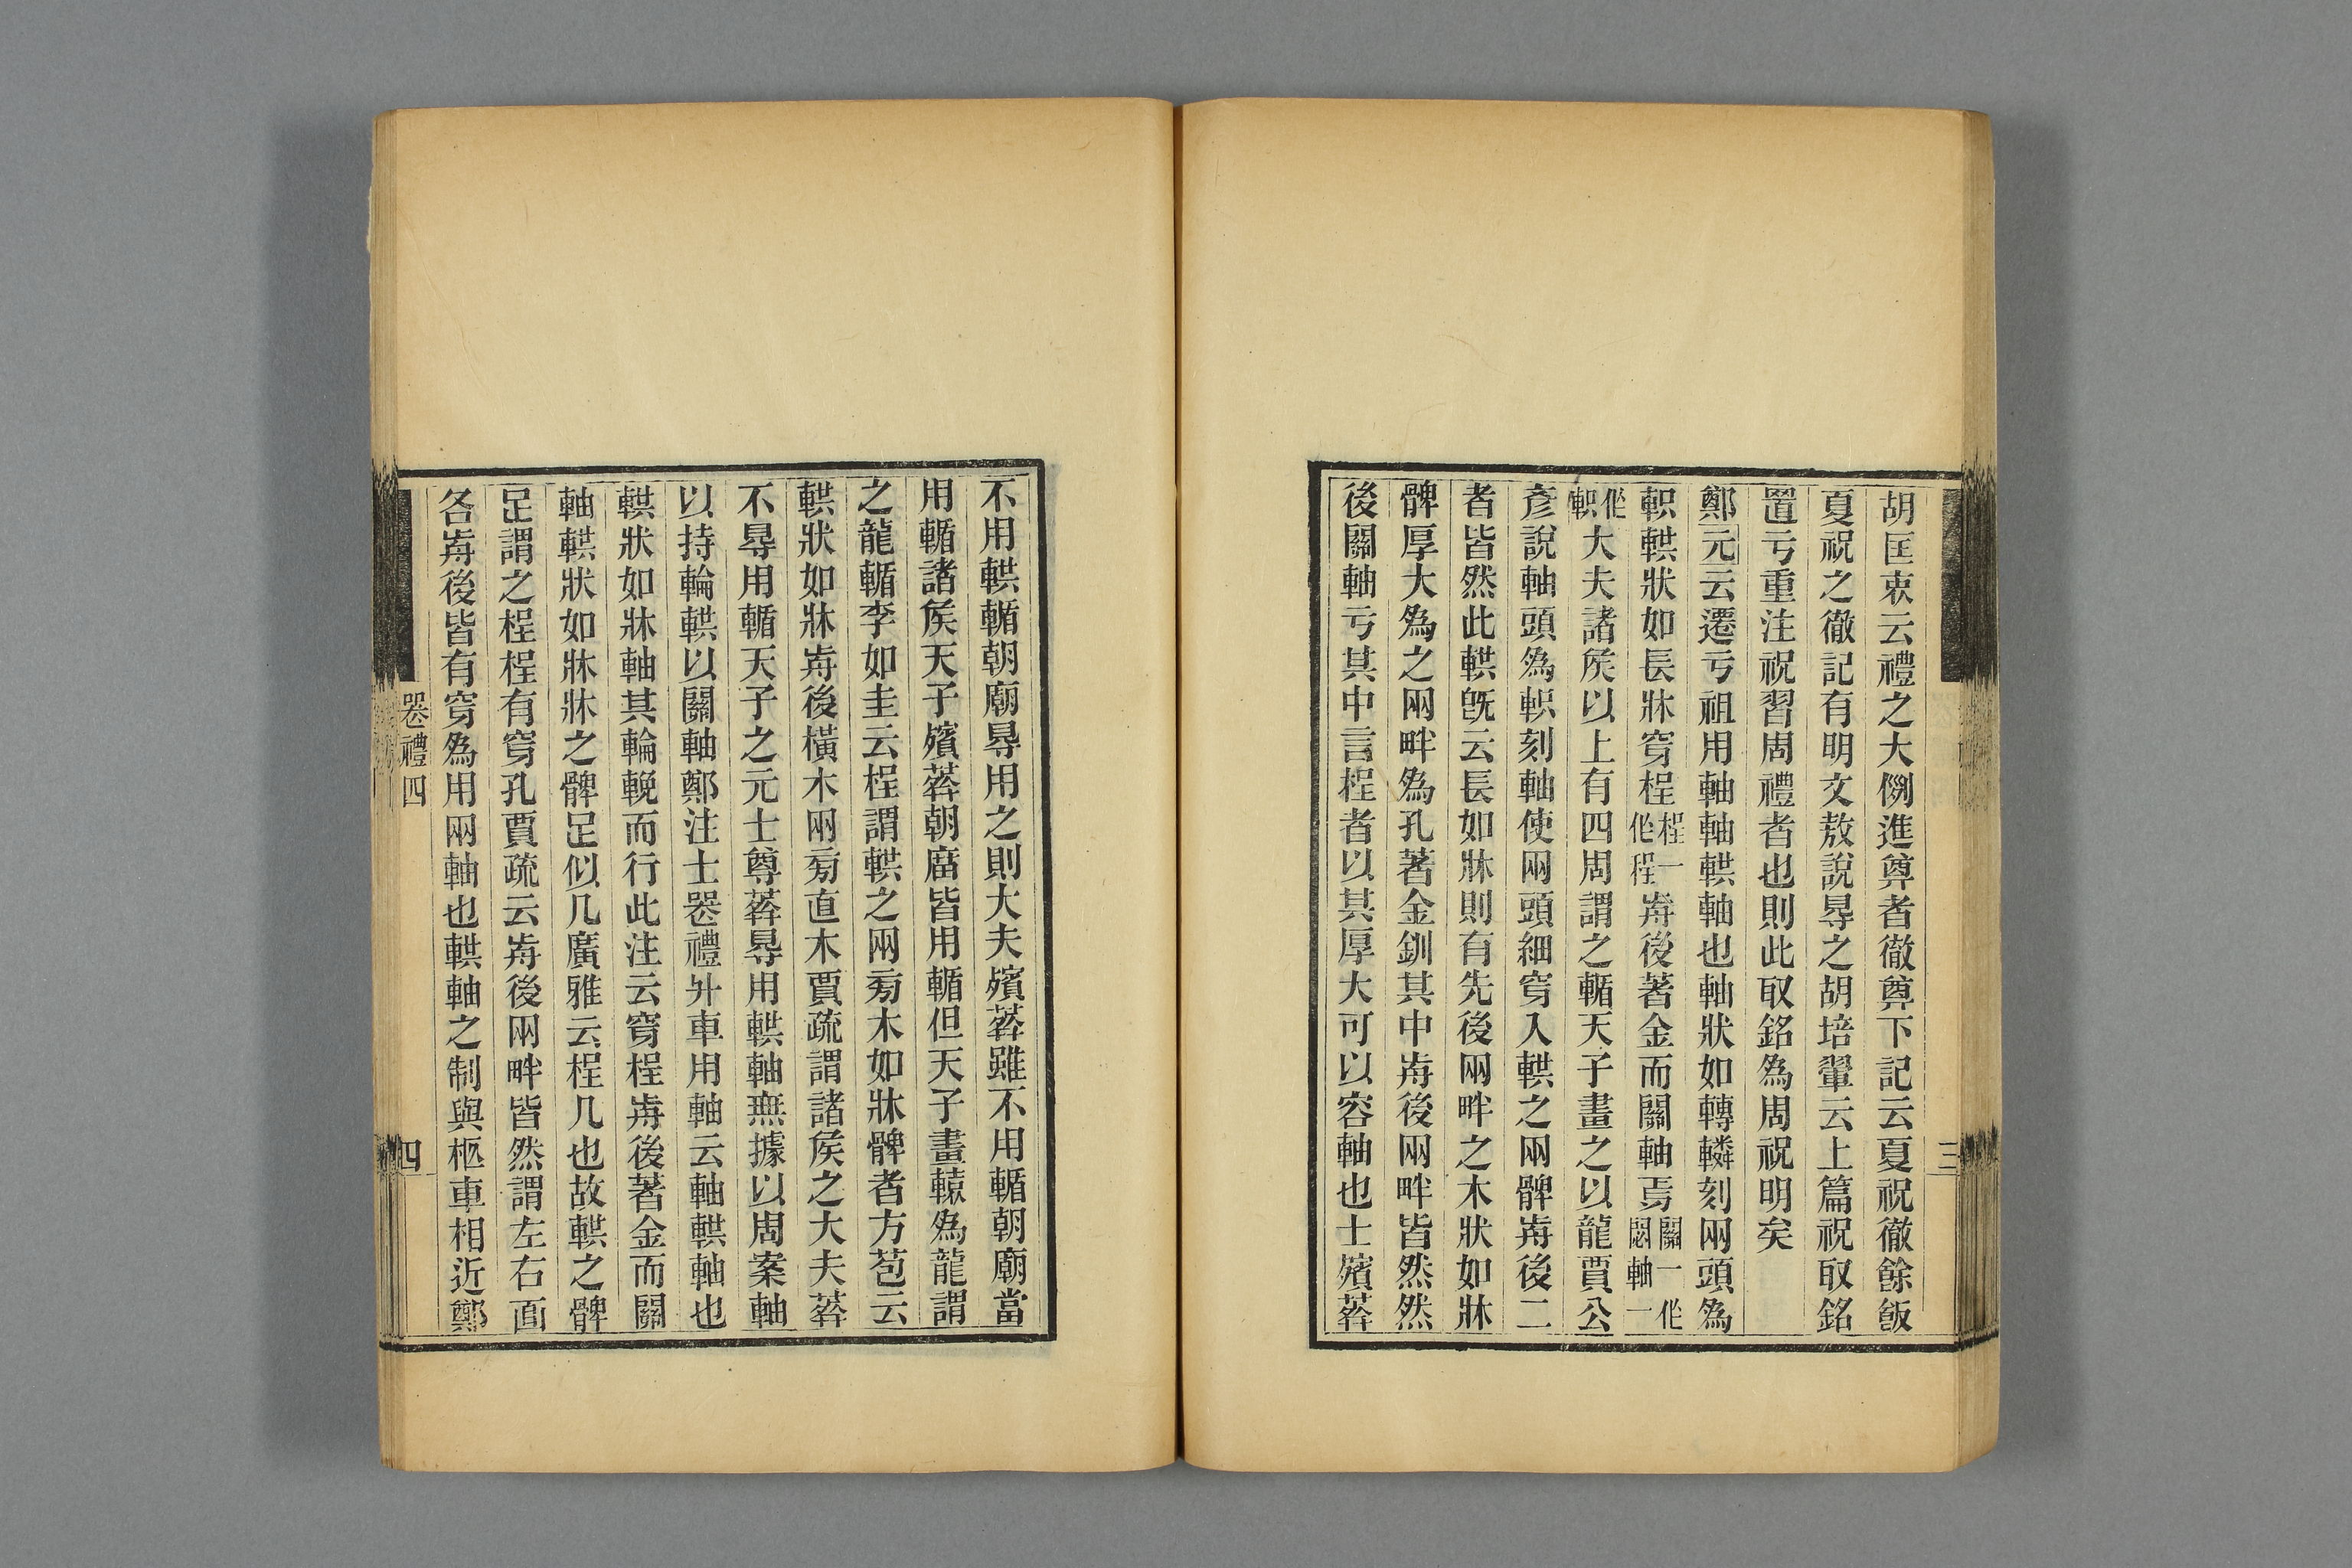 胡匡衷云禮之大例進尊者徹尊下記云夏祝徹餘飯
夏祝之徹記有明文敖說㝵之胡培翬云上篇祝取銘
置亏重注祝習周禮者也則此取銘為周祝明矣
鄭元云遷亏祖用軸軸輁軸也軸狀如轉轔刻兩頭為
軹輁狀如長牀穿桯桯一作程歬後著金而關軸焉關一作閎軸一
作軹大夫諸矦以上有四周謂之輴天子畫之以龍賈公
彥說軸頭為軹刻軸使兩頭細穿入輁之兩髀歬後二
者皆然此輁旣云長如牀則有先後兩畔之木狀如牀
髀厚大為之兩畔為孔著金釧其中歬後兩畔皆然然
後關軸亏其中言桯者以其厚大可以容軸也士殯葬
三
不用輁輴朝廟㝵用之則大夫殯葬雖不用輴朝廟當
用輴諸矦天子殯葬朝廟皆用輴但天子畫轅為龍謂
之龍輴李如圭云桯謂輁之兩旁木如牀髀者方苞云
輁狀如牀歬後橫木兩旁直木賈疏謂諸矦之大夫葬
不㝵用輴天子之元士尊葬㝵用輁軸無據以周案軸
以持輪輁以關軸鄭注士喪禮升車用軸云軸輁軸也
輁狀如牀軸其輪輓而行此注云穿桯歬後著金而關
軸輁狀如牀牀之髀足似几廣雅云桯几也故輁之髀
足謂之桯桯有穿孔賈疏云歬後兩畔皆然謂左右面
各歬後皆有穿為用兩軸也輁軸之制與柩車相近鄭
喪禮四
四